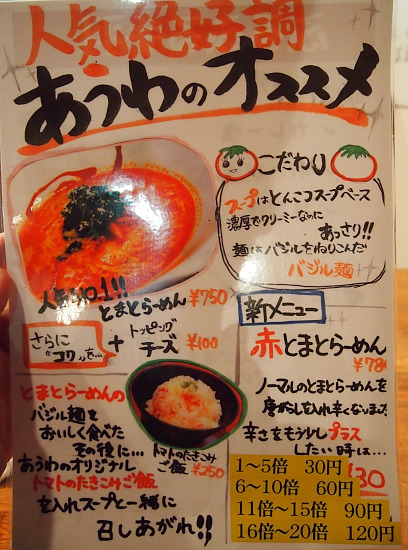 人気絶好調
あうわのオススメ
こだわり
スープはとんこつスープベース
濃厚でクリーミーなのに
あっさり!!
麺はバジルをねりこんだ
バジル麺
人気NO.1!!
とまとらーめん ¥750
さらに
"コク"を…
+ トッピング
チーズ ¥100
新メニュー
赤とまとらーめん
¥780
ノーマルのとまとらーめんを
唐がらしを入れ辛くなってます
辛さをもう少しプラス
したい時は…
1〜5倍 30円
6〜10倍 60円
11倍〜15倍 90円
16倍〜20倍 120円
とまとらーめんの
バジル麺を
おいしく食べた
その後に…
あうわのオリジナル
トマトのたきこみご飯
を入れスープと一緒に
召しあがれ!!
トマトのたきこみ
ご飯 ¥250